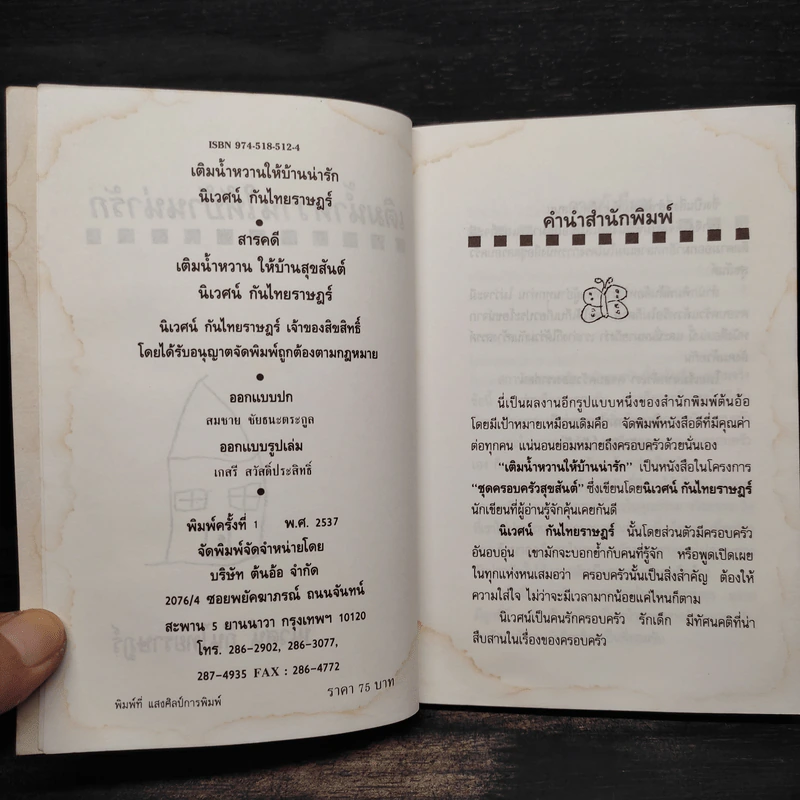 ISBN 974-518-512-4
เติมน้ำหวานให้บ้านน่ารัก
นิเวศน์ กันไทยราษฎร์
สารคดี
เติมน้ำหวาน ให้บ้านสุขสันต์
นิเวศน์ กันไทยราษฎร์
นิเวศน์ กันไทยราษฎร์ เจ้าของสิขสิทธิ์
โดยได้รับอนุญาตจัดพิมพ์ถูกต้องตามกฎหมาย
ออกแบบปก
สมชาย ชัยธนะตระกูล
ออกแบบรูปเล่ม
เกสรี สวัสดิ์ประสิทธิ์
พิมพ์ครั้งที่ 1 พ.ศ. 2537
จัดพิมพ์จัดจำหน่ายโดย
บริษัท ต้นอ้อ จำกัด
2076/4 ซอยพยัคฆาภรณ์ ถนนจันทน์
สะพาน 5 ยานนาวา กรุงเทพฯ 10120
โทร. 286-2902, 286-3077,
287-4935 FAX : 286-4772
ราคา 75 บาท
พิมพ์ที่ แสงศิลป์การพิมพ์
คำนำสำนักพิมพ์
นี่เป็นผลงานอีกรูปแบบหนึ่งของสำนักพิมพ์ต้นอ้อ
โดยมีเป้าหมายเหมือนเดิมคือ จัดพิมพ์หนังสือดีที่มีคุณค่า
ต่อทุกคน แน่นอนย่อมหมายถึงครอบครัวด้วยนั่นเอง
"เติมน้ำหวานให้บ้านน่ารัก" เป็นหนังสือในโครงการ
"ชุดครอบครัวสุขสันต์" ซึ่งเขียนโดยนิเวศน์ กันไทยราษฎร์
นักเขียนที่ผู้อ่านรู้จักคุ้นเคยกันดี
นิเวศน์ กันไทยราษฎร์ นั้นโดยส่วนตัวมีครอบครัว
อันอบอุ่น เขามักจะบอกย้ำกับคนที่รู้จัก หรือพูดเปิดเผย
ในทุกแห่งหนเสมอว่า ครอบครัวนั้นเป็นสิ่งสำคัญ ต้องให้
ความใส่ใจ ไม่ว่าจะมีเวลามากน้อยแค่ไหนก็ตาม
นิเวศน์เป็นคนรักครอบครัว รักเด็ก มีทัศนคติที่น่า
สืบสานในเรื่องของครอบครัว